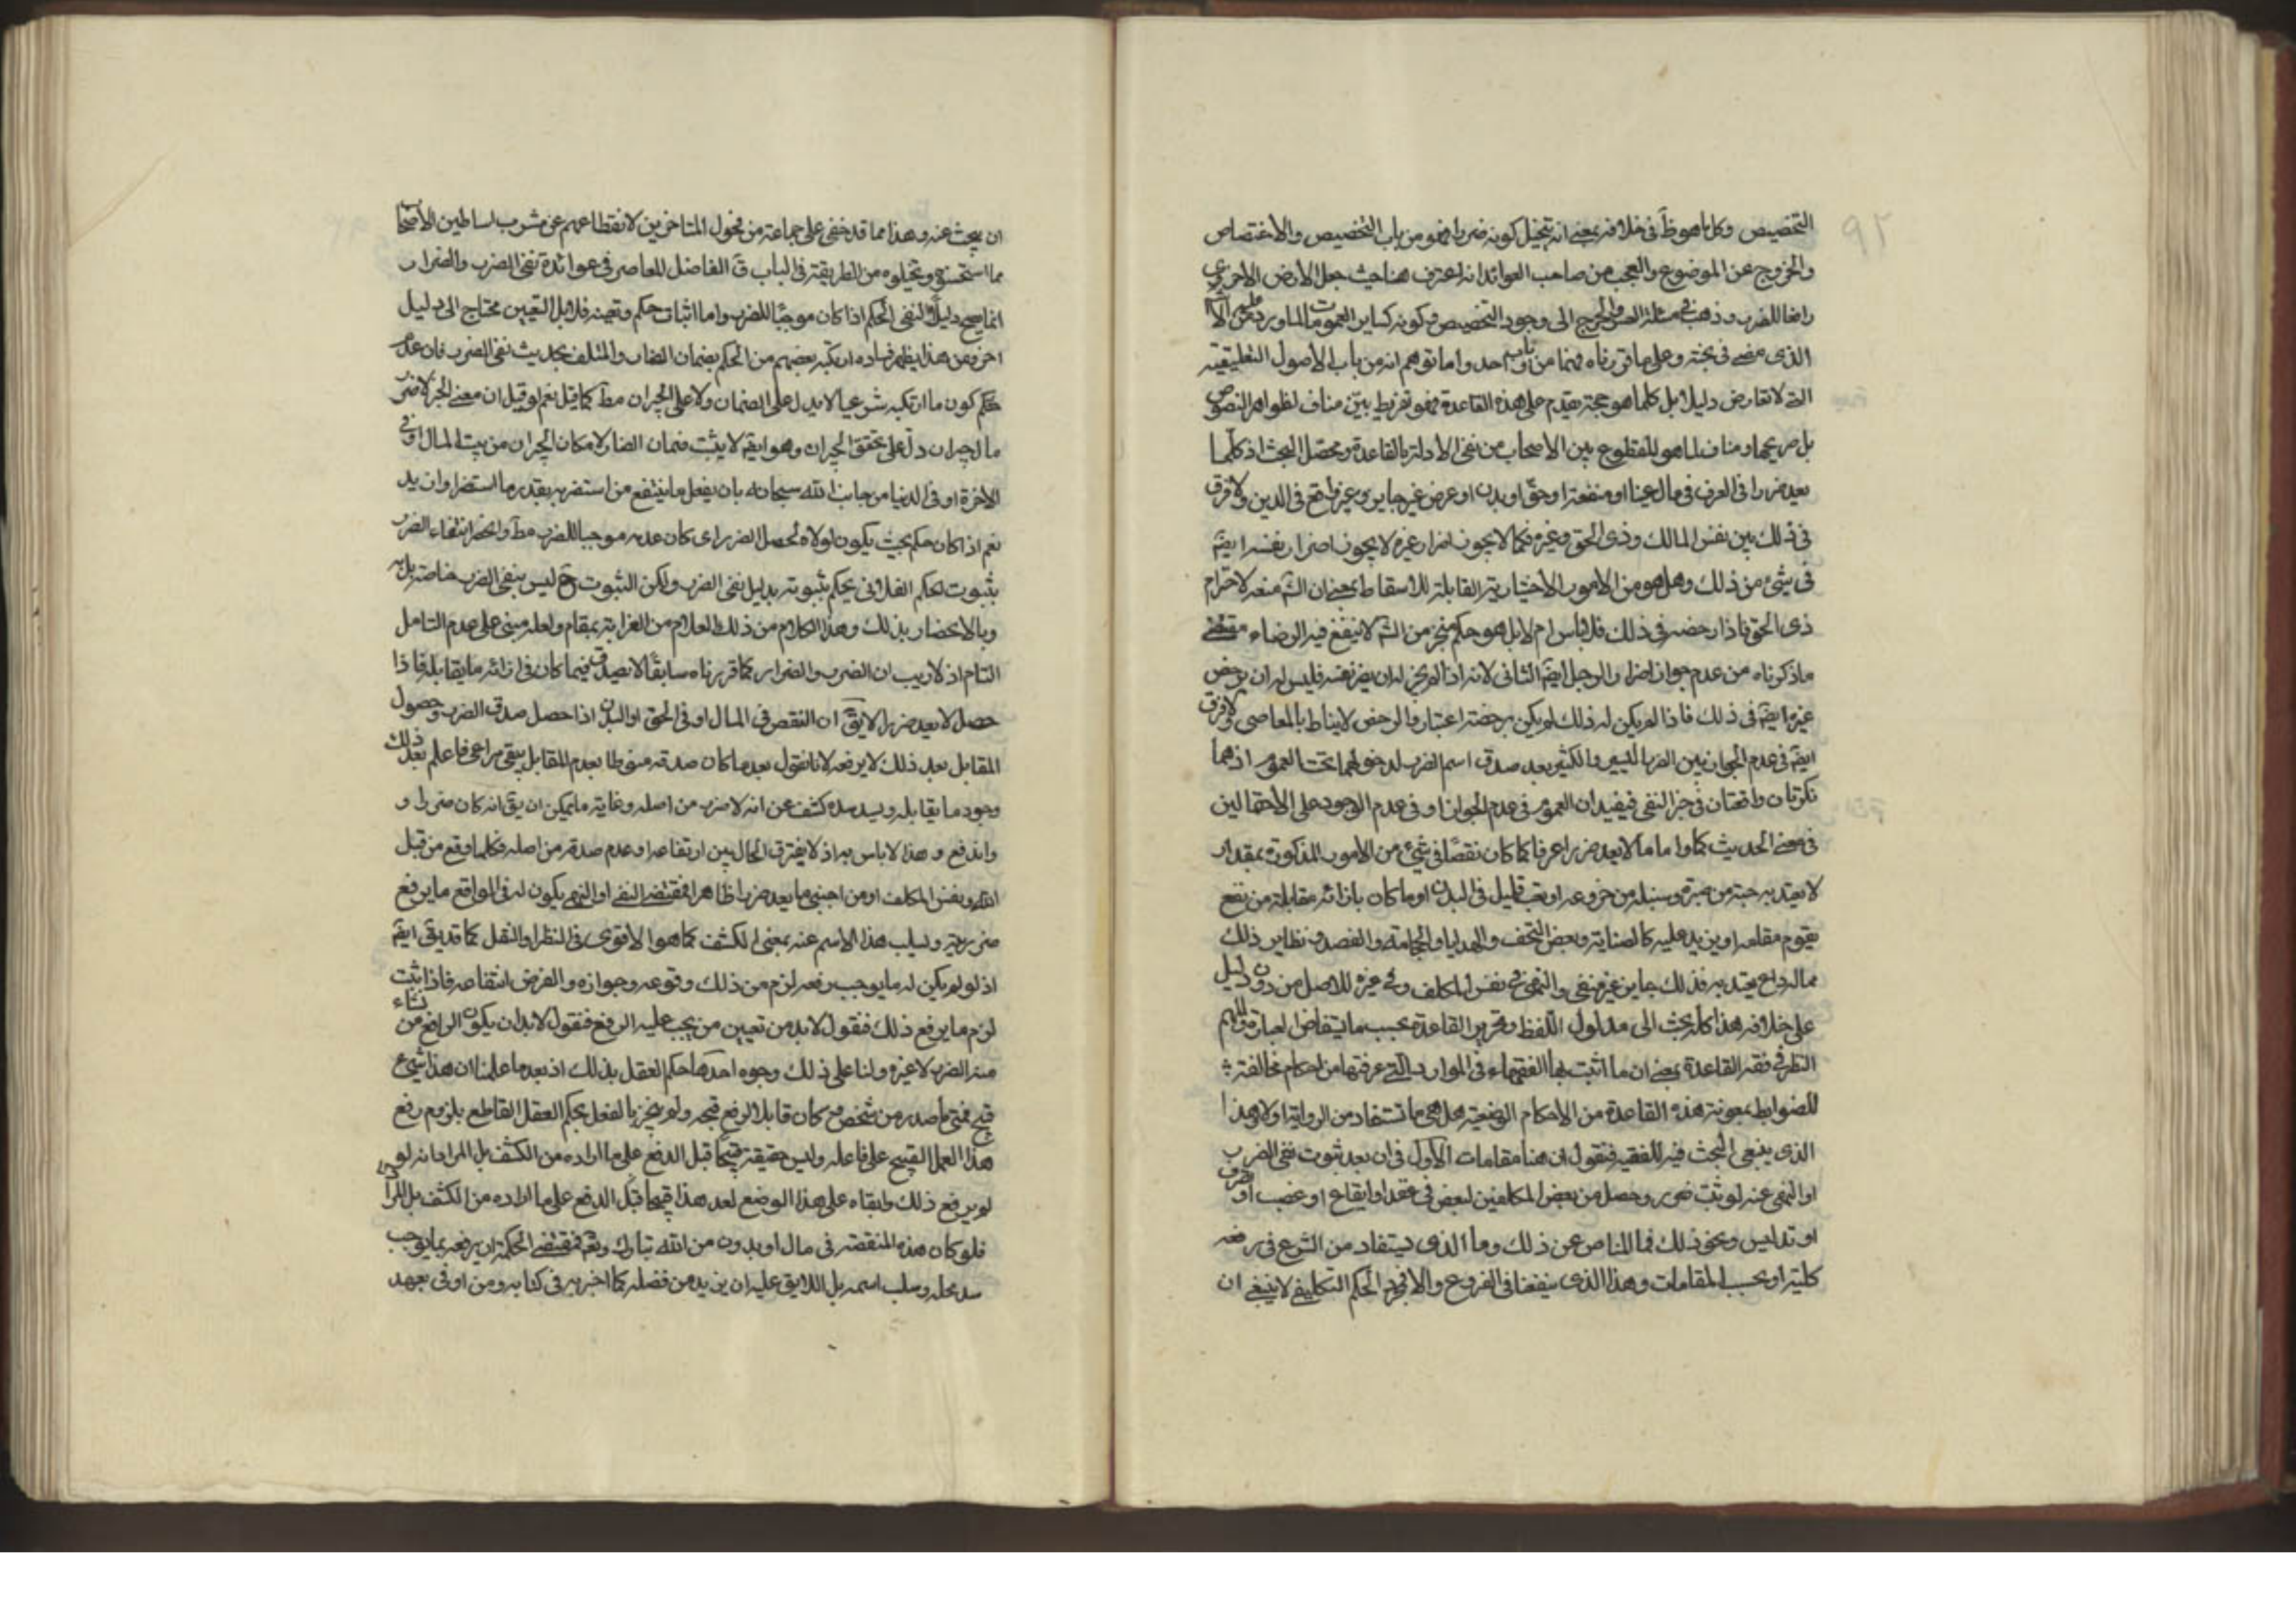 ٩٢
التخصيص وكل ما هو ظ في خلافه بمعنى انه يتخيل كونه ضررا فهو من باب التخصيص والاختصاص
والخروج عن الموضوع والعجب من صاحب العوائد انه اعترف هنا حيث جعل الارض الاخروي
رافعا للضرر وذهب في مسئلة العسر والحرج الى وجود التخصيص وكونه كساير العمومات
الذي مضى في بحثه وعلى ما قررناه فهما من باب واحد واما توهم انه من باب الاصول التعليقية
التي لا تعارض دليلا بل كلما هو حجة يقدم على هذه القاعدة فهو تفريط بين مناف لظواهر النصوص
بل صريحها ومناف لما هو المقطوع بين الاصحاب من نفي الادلة بالقاعدة ومحصل البحث ان كلما
يعد ضررا في العرف في مال عينا او منفعة او حق او بدن او عرض غير جايز وغير واقع في الدين ولا فرق
في ذلك بين نفس المالك وذي الحق وغيره فكما لا يجوز اضرار غيره لا يجوز اضرار نفسه ايضا
في شيء من ذلك وهل هو من الامور الاختيارية القابلة للاسقاط بمعنى ان الش منعه لاحترام
ذي الحق فاذا رخصه في ذلك فلا باس ام لا بل هو حكم منجز من الش لا ينفع فيه الرضاء مقتضى
ماذكرناه من عدم جواز اضرار الرجل ايضا الثاني لانه اذا لم يجز له ان يضر نفسه فليس له ان يرخص
غيره ايضا في ذلك فاذا لم يكن له ذلك لم يكن برخصته اعتبار والرخص لا يناط بالمعاصي ولا فرق
ايضا في عدم الجواز بين الضرر اليسير والكثير بعد صدق اسم الضرر لدخولهما تحت العموم اذ هما
نكرتان واقعتان في حيز النفي فيفيدان العموم في عدم الجواز او في عدم الوجود على الاحتمالين
في معنى الحديث كما واما ما لا يعد ضررا عرفا كما كان نقصا في شيء من الامور المذكورة بمقدار
لا يعتد به حبة من صبرة وسنبلة من خروعه او تعب قليل في البدن او ما كان بازائه مقابلة من نفع
يقوم مقامه او يزيد عليه كالضيافة وبعض التحف والهدايا والحجامة والفصد ونظاير ذلك
مما لداع يعتد به فذلك جايز غير منفي والنهي في نفس المكلف وفي غيره للاصل من دون دليل
على خلافه هذا كله بحث الى مدلول اللفظ وتحرير القاعدة بحسب ما يستفاد من العبارة والمهم
النظر في فقه القاعدة بمعنى ان ما اثبت بها الفقهاء في الموارد التي عرفتها من احكام مخالفة
للضوابط بمعونة هذه القاعدة من الاحكام الوضعية هل هي مما تستفاد من الرواية او لا وهذا
الذي ينبغي البحث فيه للفقيه فنقول ان هنا مقامات الاول في ان بعد ثبوت نفي الضرر
او النهي عنه لو ثبت ضرر وحصل من بعض المكلفين لبعض في عقد او ايقاع او غصب او تصرف
او تدليس ونحو ذلك فما المناص عن ذلك وما الذي يستفاد من الشرع في رفعه
كلية او بحسب المقامات وهذا الذي ينفعنا في الفروع والا فمجرد الحكم التكليفي لا ينبغي ان
ان يبحث عنه وهذا مما قد خفي على جماعة من فحول المتاخرين لانقطاعهم عن مشرب اساطين الاصحاب
مما استحسنوه وتخيلوه من الطريقة في الباب ق الفاضل المعاصر في عوائده نفي الضرر والضرار
انما يصح دليلا لنفي الحكم اذا كان موجبا للضرر واما اثبات حكم وتعيينه فلا بل التعيين محتاج الى دليل
اخر ومن هذا يظهر فساد ما ارتكبه بعضهم من الحكم بضمان الضار والمتلف بحديث نفي الضرر فان عدم
حكم كون ما ارتكبه شرعيا لا يدل على الضمان ولا على الجبران مط كما قيل نعم لو قيل ان معنى الخبر لا ضرر
ما لا جبران دل على تحقق الجبران وهو ايضا لا يثبت ضمان الضار لامكان الجبران من بيت المال او في
الاخرة او في الدنيا من جانب الله سبحانه بان يفعل ما ينتفع من استضر به بقدر ما استضر او ازيد
نعم اذا كان حكم بحيث يكون لولاه لحصل الضرر اي كان عدمه موجبا للضرر مط وانحصر انتفاء الضرر
بثبوت الحكم الفلاني يحكم بثبوته بدليل نفي الضرر ولكن الثبوت ح ليس بنفي الضرر خاصة بل به
وبالانحصار بذلك وهذا الكلام من ذلك العلام من الغرابة بمقام ولعله مبني على عدم التامل
التام اذ لا ريب ان الضرر والضرار كما قررناه سابقا لا يصدق فيما كان في ازائه ما يقابله فاذا
حصل لا يعد ضررا لا يق ان النقص في المال او في الحق او البدن اذا حصل صدق الضرر وحصول
المقابل بعد ذلك لا يرفعه لانا نقول بعد ما كان صدقه منوطا بعدم المقابل يبقى مراعى فاذا علم بعد ذلك
وجود ما يقابله ويسد سده كشف عن انه لا ضرر من اصله وغاية ما يمكن ان يق انه كان ضررا و
واندفع وهذا لا باس به اذ لا يفترق الحال بين ارتفاعه او عدم صدقه من اصله فكلما وقع من قبل
الله او بنفس المكلف او من اجنبي ما يعد ضررا ظاهرا فمقتضى النفي او النهي ان يكون له في الواقع ما يرفع
ضرريته وليسلب هذا الاسم عنه بمعنى الكشف كما هو الاقوى في النظر او النقل كما قد يق ايضا
اذ لو لم يكن له ما يوجب رفعه لزم من ذلك وقوعه وجوازه والفرض انتفاعه فاذا ثبت
لزم ما يرفع ذلك فنقول لا بد من تعيين من يجب عليه الرفع فنقول لا بد ان يكون الرافع من نشاء
منه الضرر لا غيره ولنا على ذلك وجوه احدها حكم العقل بذلك اذ بعد ما علمنا ان هذا شيء
قبيح فمتى ما صدر من شخص وكان قابلا لرفع قبحه ولو بغير بالفعل يحكم العقل القاطع بلزوم رفع
هذا العمل القبيح على فاعله وليس حقيقة قبيحا قبل الدفع على ما اراده من الكشف بل المراد انه لو
لو يرفع ذلك وابقاه على هذا الوضع لعد هذا قبيحا قبل الدفع على ما اراده من الكشف بل المراد
فلو كان هذه المنقصة في مال او بدون من الله تبارك وتعالى فمقتضى الحكمة ان يرفعه بما يوجب
سد محله وسلب اسمه بل اللايق عليه ان يزيد من فضله كما اخبر به في كتابه ومن اوفى بعهد